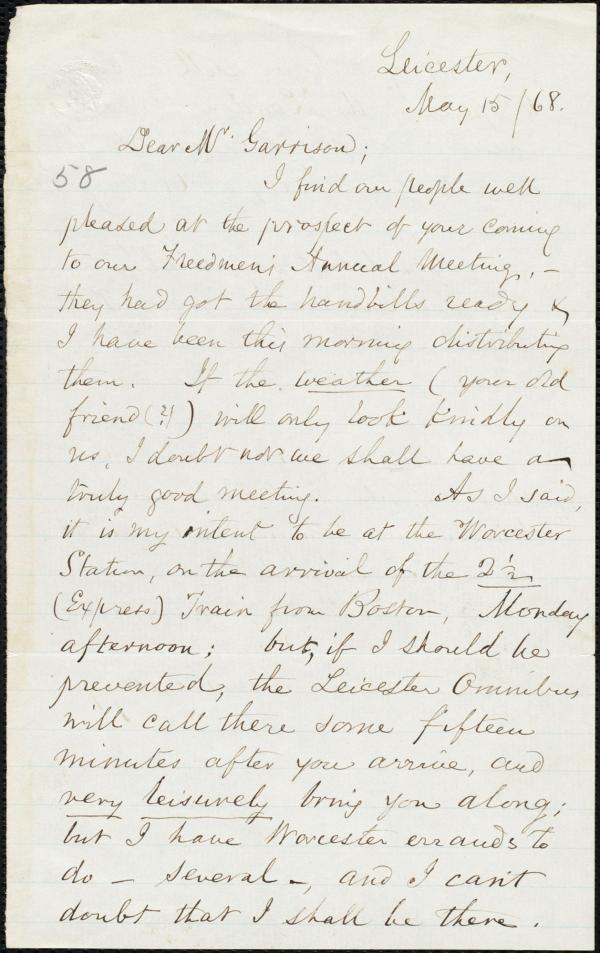 Leicester,
May 15/68.
Dear Mr. Garrison;
58
I find our people well
pleased at the prospect of your coming
to our Freedmen's Annual Meeting, -
they had got the handbills ready &
I have been this morning distributing
them. If the weather (your old
friend (?!) ) will only look kindly on
us, I doubt not we shall have a
truly good meeting. As I said,
it is my intent to be at the Worcester
Station, on the arrival of the 2½
(Express) Train from Boston, Monday
afternoon; but, if I should be
prevented, the Leicester Omnibus
will call there some fifteen
minutes after you arrive, and
very leisurely bring you along;
but I have Worcester errands to
do - several -, and I can't
doubt that I shall be there.